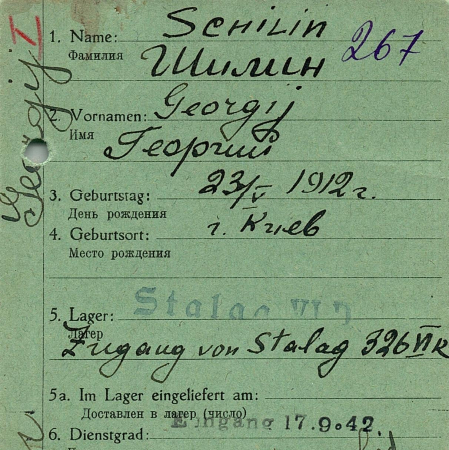 1. Name: Schilin
Фамилия Шилин 267
I
2. Vornamen: Georgij
Имя Георгий
Georgij
3. Geburtstag: 23/V 1912 г.
День рождения
4. Geburtsort: г. Киев
Место рождения
5. Lager: Stalag VI D
Лагер
Zugang von Stalag 326 VI K
5a. Im Lager eingeliefert am:
Доставлен в лагер (число)
Eingang 17.9.42
6. Dienstgrad: